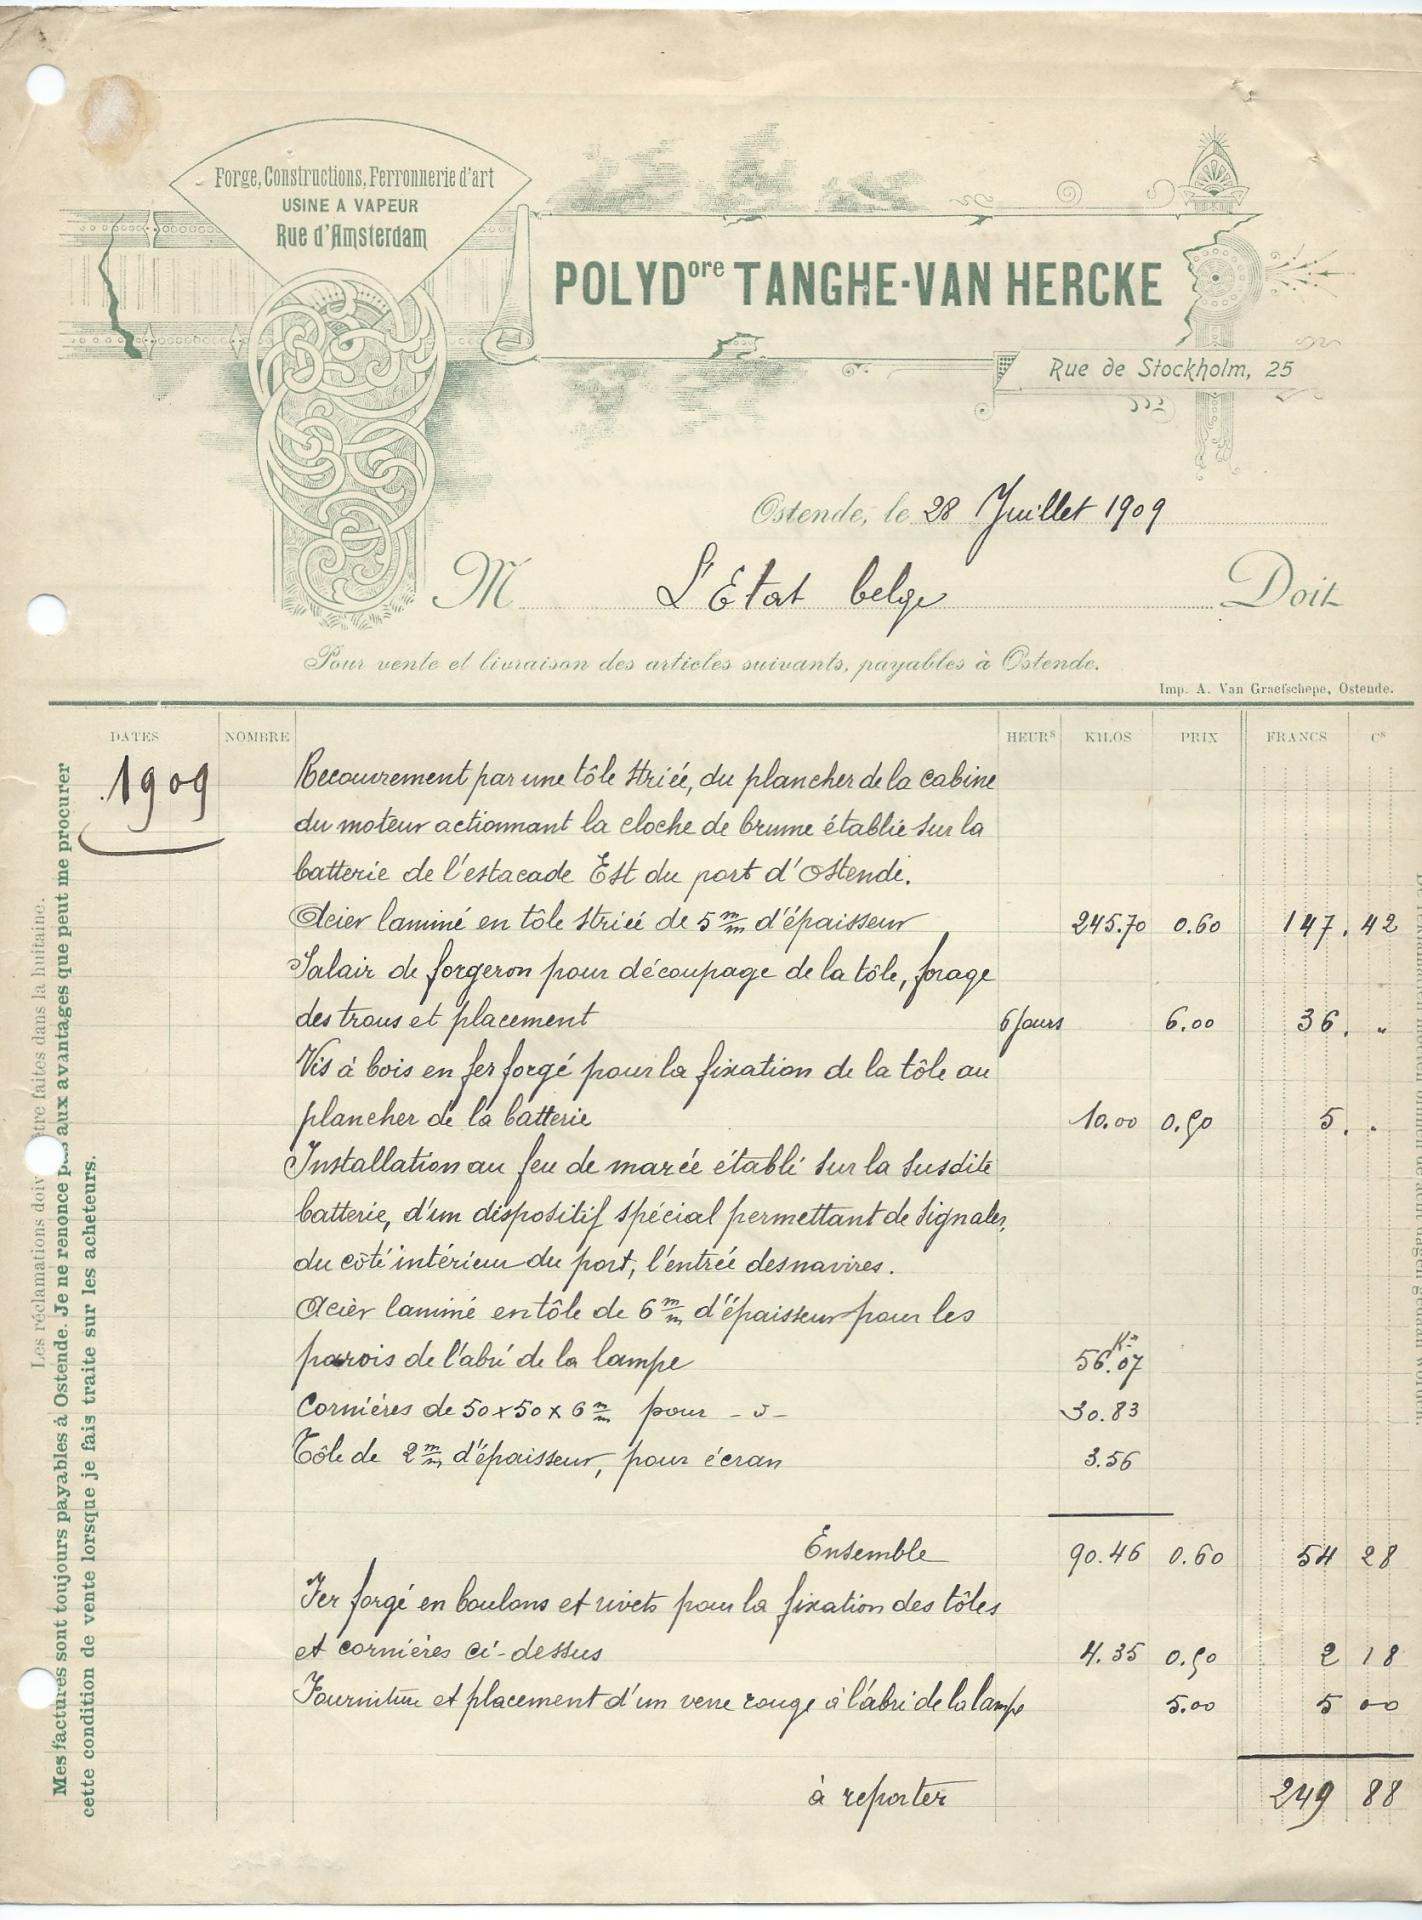 Forge, Constructions, Ferronnerie d'art
USINE A VAPEUR
Rue d'Amsterdam
POLYDore TANGHE-VAN HERCKE
Rue de Stockholm, 25
Ostende, le 28 Juillet 1909
M L'Etat belge Doit
Pour vente et livraison des articles suivants, payables à Ostende.
Imp. A. Van Graefschepe, Ostende.
DATES NOMBRE HEURs KILOS PRIX FRANCS Cs
1909 Recouvrement par une tôle striée, du plancher de la cabine
du moteur actionnant la cloche de brume établie sur la
batterie de l'estacade Est du port d'Ostende.
Acier laminé en tôle striée de 5 m/m d'épaisseur 245.70 0.60 147. 42
Salair de forgeron pour découpage de la tôle, forage
des trous et placement 6 jours 6.00 36. "
Vis à bois en fer forgé pour la fixation de la tôle au
plancher de la batterie 10.00 0.50 5. .
Installation au feu de marée établi sur la susdite
batterie, d'un dispositif spécial permettant de signaler,
du côté intérieur du port, l'entrée des navires.
Acier laminé en tôle de 6 m/m d'épaisseur pour les
parois de l'abri de la lampe 56.07
Cornières de 50 x 50 x 6 m/m pour 30.83
Tôle de 2 m/m d'épaisseur, pour écran 3.56
Ensemble 90.46 0.60 54 28
Fer forgé en boulons et rivets pour la fixation des tôles
et cornières ci-dessus 4.35 0.50 2 18
Fourniture et placement d'un verre rouge à l'abri de la lampe 5.00 5 00
à reporter 249 88
Les réclamations doiv être faites dans la huitaine.
Mes factures sont toujours payables à Ostende. Je ne renonce pas aux avantages que peut me procurer
cette condition de vente lorsque je fais traite sur les acheteurs.